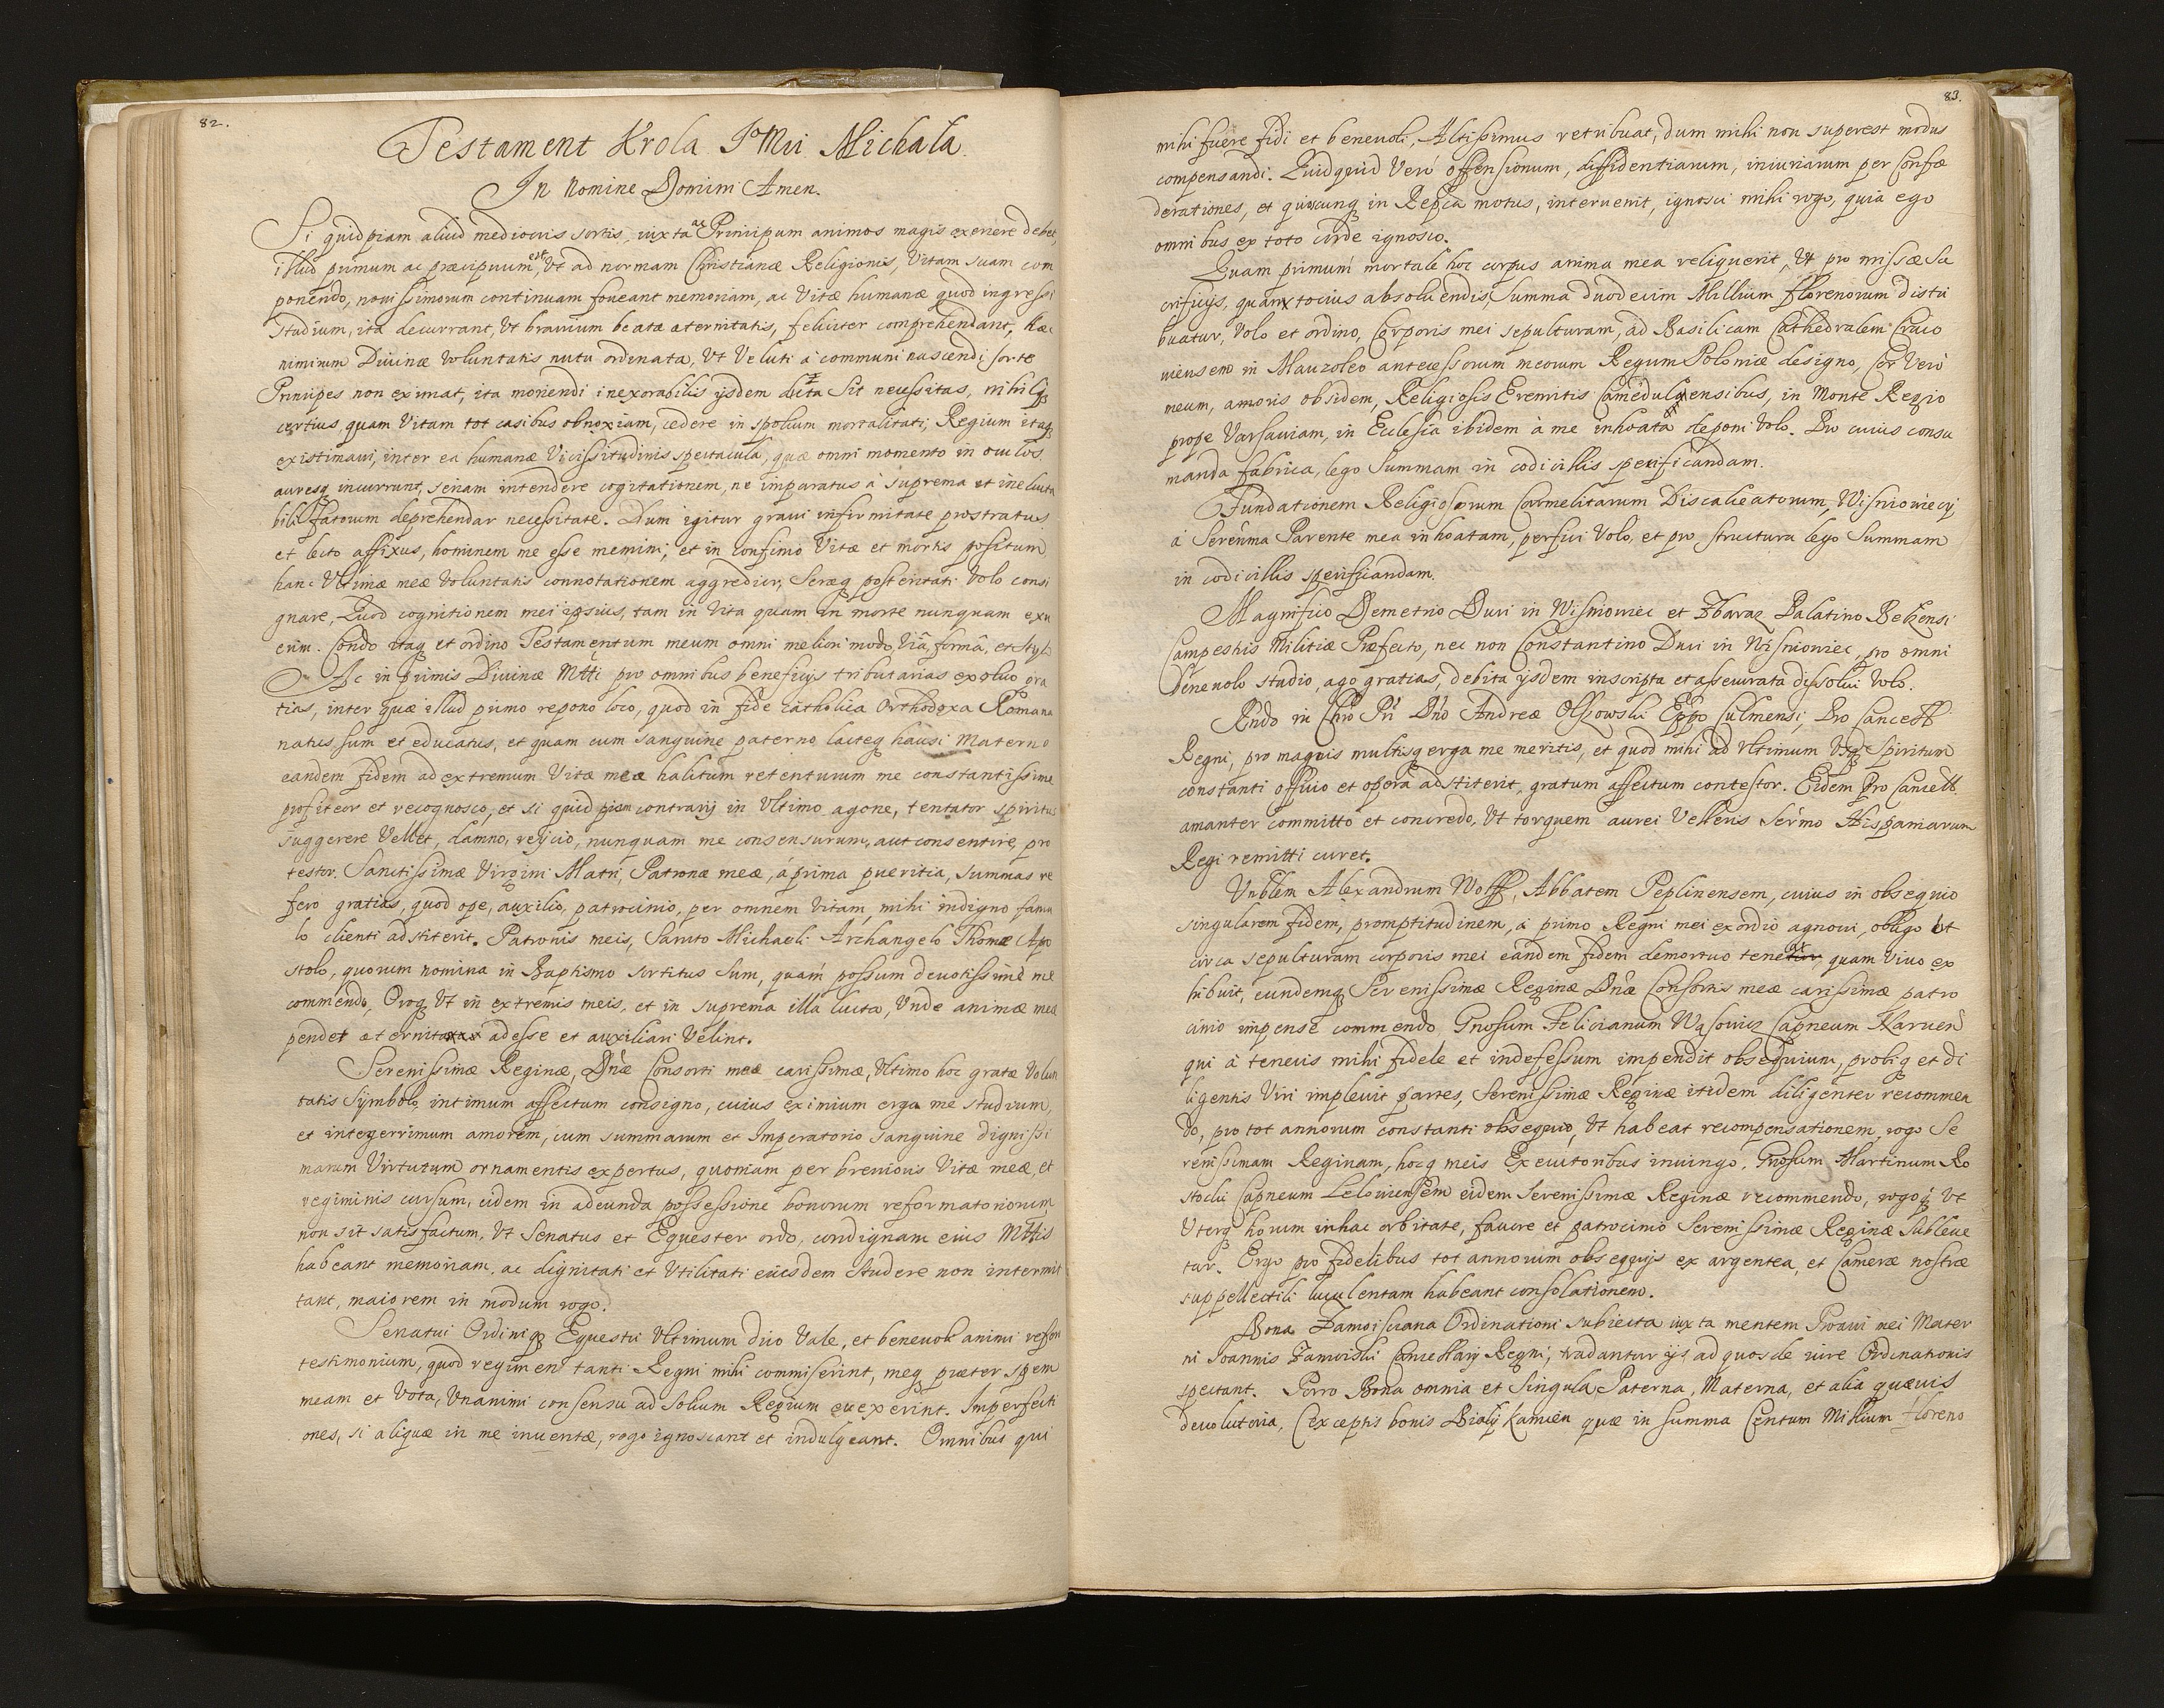 82.
Testament Krola JoMci Michała.
In Nomine Domini Amen.
Si quidpiam aliud mediocris sortis, iuxta ac Principum animos magis exerere debet,
illud primum ac præcipuum est, Vt ad normam Christianæ Religionis, Vitam suam com
ponendo, nouissimorum continuam foueant memoriam, ac Vitæ humanæ quod ingressi
studium, ita decurrant, Vt brauium beatæ æternitatis, feliciter comprehendant, hæc
nimirum Diuinæ Voluntatis nutu ordinata, Vt Veluti a communi nascendi sorte
Principes non eximat, ita moriendi inexorabilis ijsdem dicta Sit necessitas, nihilq
certius, quam Vitam tot casibus obnoxiam, cedere in spolium mortalitati; Regium itaq
existimaui, inter ea humanæ Vicissitudinis spectacula, quæ omni momento in oculos
auresq incurrunt, seriam intendere cogitationem, ne imparatus à suprema et inelucta
bili fatorum deprehendar necessitate. Dum igitur graui infirmitate prostratus
et lecto affixus, hominem me esse memini, et in confinio Vitæ et mortis positum
hanc Vltimæ meæ Voluntatis connotationem aggredior, Seræq posteritati Volo consi
gnare, Quod cognitionem mei ipsius, tam in Vita quam in morte nunquam exu
erim. Condo itaq et ordino Testamentum meum omni meliori modo, Viâ, formâ, et stylo
Ac in primis Diuinæ Mtti pro omnibus beneficijs tributarias exoluo gra
tias, inter quæ illud primo repono loco, quod in fide Catholica Orthodoxa Romana
natus sum et educatus, et quam cum sanguine paterno lacteq hausi Materno
eandem fidem ad extremum Vitæ meæ halitum retenturum me constantissime
profiteor et recognosco, et si quid piam contrarij in Vltimo agone, tentator spiritus
suggerere Vellet, damno, reijcio, nunquam me consensurum, aut consentire, pro
testor. Sanctissimæ Virgini Matri, Patronæ meæ, á prima pueritia, summas re
fero gratias, quod ope, auxilio, patrocinio, per omnem Vitam, mihi indigno famu
lo clienti adstiterit. Patronis meis, Sancto Michaeli Archangelo Thomæ Apo
stolo, quorum nomina in Baptismo sortitus sum, quam possum deuotissimè me
commendo, Oroq Vt in extremis meis, et in suprema illa lucta, Vnde animæ meæ
pendet æternitas adesse et auxiliari Velint.
Serenissimæ Reginæ, Dnæ Consorti meæ carissimæ, Vltimo hoc gratæ Volun
tatis Symbolo, intimum affectum consigno, cuius eximium erga me studium,
et integerrimum amorem, cum summarum et Imperatorio sanguine dignissi
marum Virtutum ornamentis expertus, quoniam per breuioris Vitæ meæ, et
regiminis cursum, eidem in adeunda possessione bonorum reformatoriorum
non sit satisfactum, Vt Senatus et Equester ordo, condignam eius Mttis
habeant memoriam, ac dignitati et Vtilitati eiusdem studere non intermit
tant, maiorem in modum rogo.
Senatui Ordiniq Equestri Vltimum dico Vale, et beneuoli animi refero
testimonium, quod regimen tanti Regni mihi commiserint, meq præter spem
meam et Vota, Vnanimi consensu ad Solium Regium euexerint. Imperfecti
ones, si aliquæ in me inuentæ, rogo ignoscant et indulgeant. Omnibus qui
83.
mihi fuere fidi et beneuoli, Altissimus retribuat, dum mihi non superest modus
compensandi. Quidquid Verò offensionum, diffidentiarum, iniuriarum per Confæ
derationes, et quoscunq in Repca motus, interuenit, ignosci mihi rogo, quia ego
omnibus ex toto corde ignosco.
Quam primum mortale hoc corpus anima mea reliquerit, Vt pro missæ Sa
crificijs, quantocius absoluendis, Summa duodecim Millium florenorum distri
buatur, Volo et ordino, Corporis mei sepulturam, ad Basilicam Cathedralem Craco
uiensem in Mauzoleo antecessorum meorum Regum Poloniæ designo, Cor Verò
meum, amoris obsidem, Religiosis Eremitis Camedulensibus, in Monte Regio
prope Varsauiam, in Ecclesia ibidem à me inhoata deponi Volo. Pro cuius consu
manda fabrica, lego Summam in codicillis specificandam.
Fundationem Religiosorum Carmelitarum Discalceatorum, Wisniowiecij
à Serenma Parente mea inhoatam, perfici Volo, et pro structura lego Summam
in codicillis specificandam.
Magnifico Demetrio Duci in Wisniowiec et Zbaraz Palatino Belzensi
Campestris Militiæ Præfecto, nec non Constantino Duci in Wisniowiec, pro omni
beneuolo studio, ago gratias, debita ijsdem inscripta et assecurata dissolui Volo.
Rndo in Chro Pri Dno Andreæ Olszowski Eppo Culmensi, Pro Cancell
Regni, pro magnis multisq erga me meritis, et quod mihi ad Vltimum Vsq Spiritum
constanti officio et opera adstiterit, gratum affectum contestor. Eidem Pro Cancell.
amanter committo et concredo, Vt torquem aurei Velleris Sermo Hispaniarum
Regi remitti curet.
Vnblem Alexandrum Wolff, Abbatem Peplinensem, cuius in obsequio
singularem fidem, promptitudinem, a primo Regni mei exordio agnoui, obligo Vt
circa sepulturam corporis mei eandem fidem demortuo teneat, quam Viuo ex
hibuit, eundemq Serenissimæ Reginæ Dnæ Consortis meæ carissimæ patro
cinio impensè commendo, Gnosum Felicianum Wąsowicz Capneum Karuen
qui à teneris mihi fidele et indefessum impendit obsequium, probiq et di
ligentis Viri impleuit partes, Serenissimæ Reginæ itidem diligenter recommen
do, pro tot annorum constanti obsequio, Vt habeat recompensationem, rogo Se
renissimam Reginam, hocq meis Executoribus iniungo. Gnosum Martinum Ro
stocki Capneum Lelouiensem eidem Serenissimæ Reginæ recommendo, rogoq Vt
Vterq horum in hac orbitate, fauore et patrocinio Serenissimæ Reginæ Subleue
tur. Ergo pro fidelibus tot annorum obsequijs ex argentea, et Cameræ nostræ
suppellectili luculentam habeant consolationem.
Bona Zamoisciana Ordinationi subiecta iuxta mentem Proaui mei Mater
ni Joannis Zamoiski Cancellarij Regni, tradantur ijs, ad quos de iure Ordinationis
spectant. Porro Bona omnia et Singula Paterna, Materna, et alia quæuis
deuolutoria, (exceptis bonis Biały Kamien quæ in summa Centum Millium Floreno